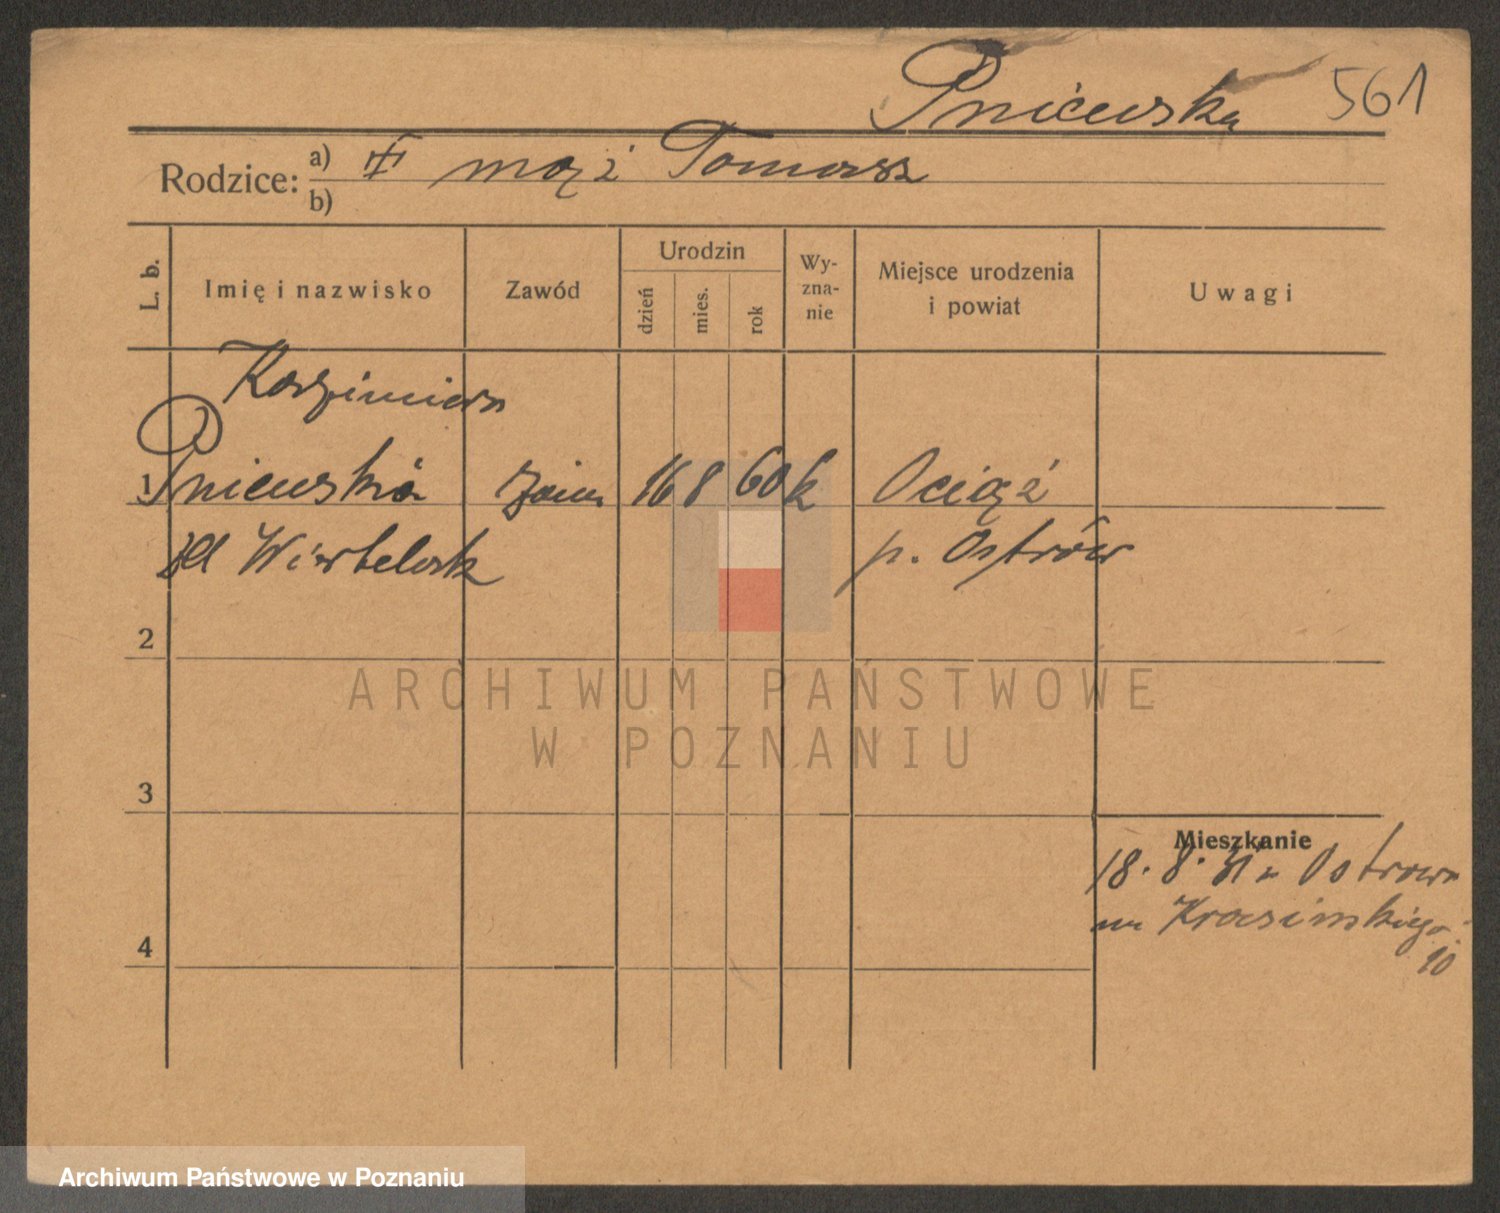 Pniewska 561
Rodzice: a) II mąż Tomasz
b)
L. b. Imię i nazwisko Zawód Urodzin dzień mies. rok Wyznanie Miejsce urodzenia i powiat Uwagi
Kazimiera
1 Pniewska 16 8 60 k Ociąż
p. Ostrów
2
ARCHIWUM PAŃSTWOWE
W POZNANIU
3
Mieszkanie
18. 8. 31 z Ostrowa
4
Krasińskiego
10
Archiwum Państwowe w Poznaniu